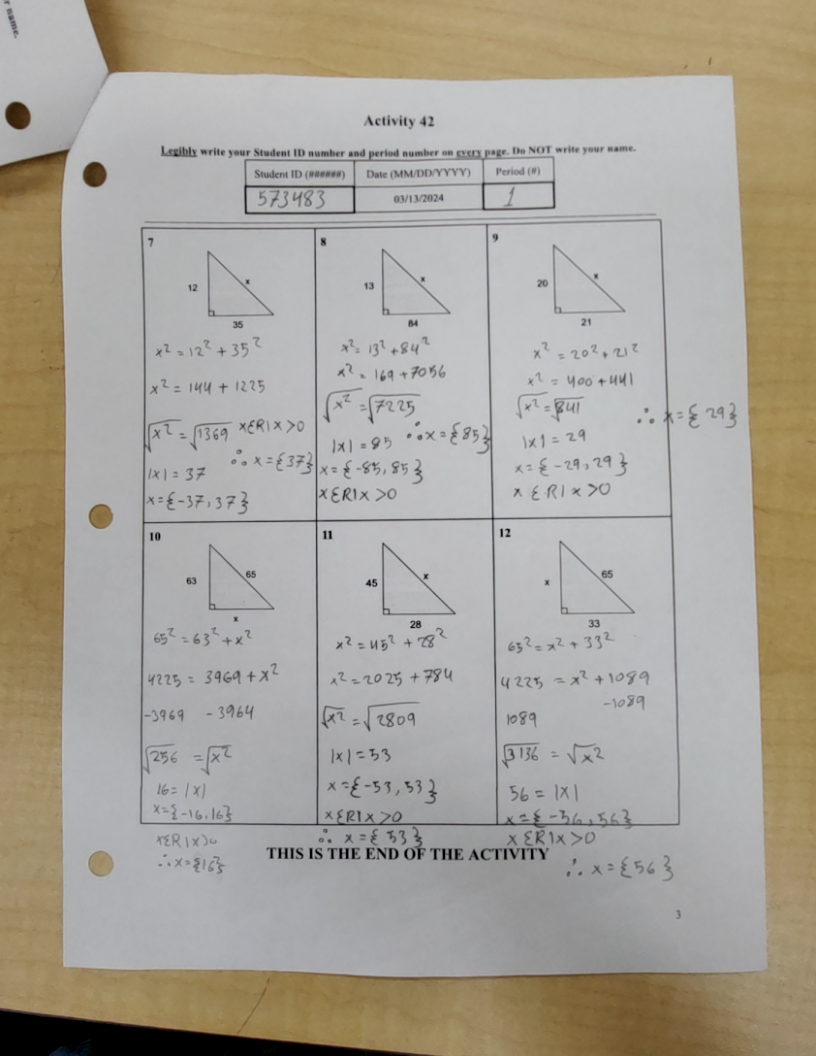 r name.
Activity 42
Legibly write your Student ID number and period number on every page. Do NOT write your name.
Student ID (######) Date (MM/DD/YYYY) Period (#)
573483 03/13/2024 1
7
12
x
35
x² = 12² + 35²
x² = 144 + 1225
√x² = √1369 x∈R|x>0
|x| = 37 ∴ x={37}
x={-37,37}
8
13
x
84
x² = 13² + 84²
x² = 169 + 7056
√x² = √7225
|x| = 85 ∴ x={85}
x={-85,85}
x∈R|x>0
9
20
x
21
x² = 20² + 21²
x² = 400 + 441
√x² = √841 ∴ x={29}
|x| = 29
x={-29,29}
x∈R|x>0
10
63
65
x
65² = 63² + x²
4225 = 3969 + x²
-3969 -3964
√256 = √x²
16 = |x|
x={-16,16}
x∈R|x>0
∴ x={16}
11
45
x
28
x² = 45² + 28²
x² = 2025 + 784
√x² = √2809
|x| = 53
x={-53,53}
x∈R|x>0
∴ x={53}
12
x
65
33
65² = x² + 33²
4225 = x² + 1089
-1089
1089
√3136 = √x²
56 = |x|
x={-56,56}
x∈R|x>0
∴ x={56}
THIS IS THE END OF THE ACTIVITY
3